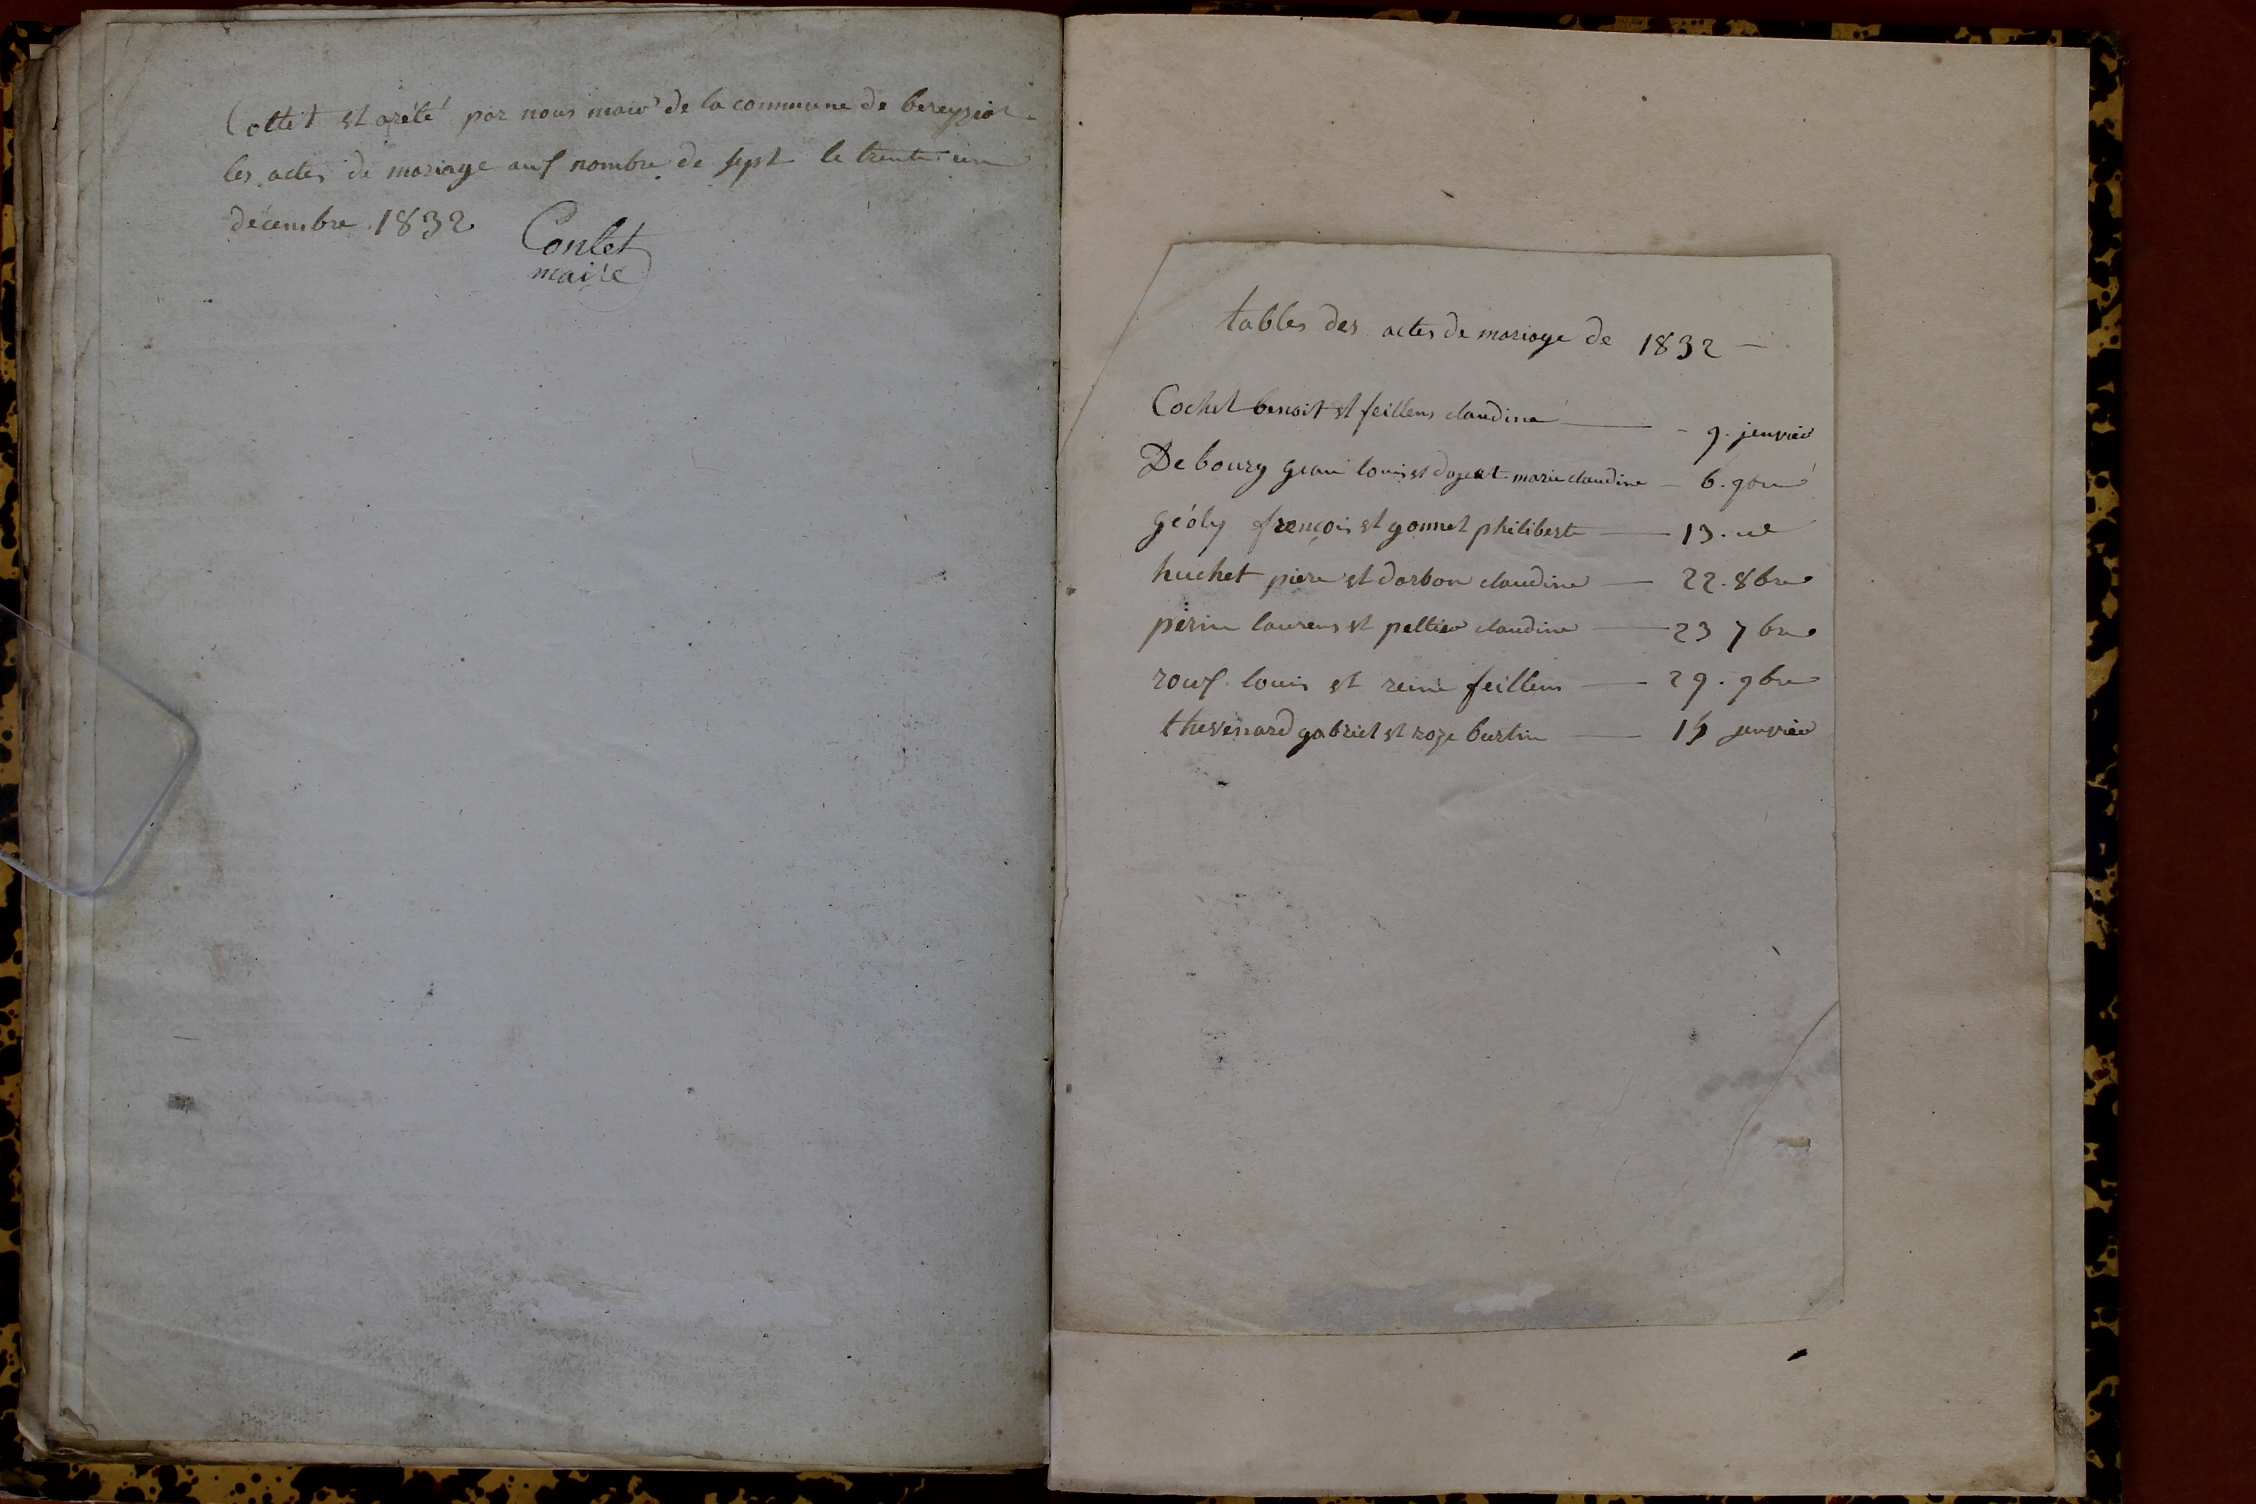 Cottet et arété par nous maire de la commune de bereyziat
les actes de mariage aux nombre de sept le trente un
décembre 1832
Conlet
maire
tables des actes de mariage de 1832 —
Cochet benoit et feillens claudine — 9. jenvier
De bourg louis et marie claudine — 6. 9bre
géoly françois et gonnet philiberte — 13. id
huchet piere et darbon claudine — 22. 8bre
périn laurens et peltier claudine — 23 7bre
roux louis et reine feillens — 29. 9bre
thevenard gabriel et roze burtin — jenvier